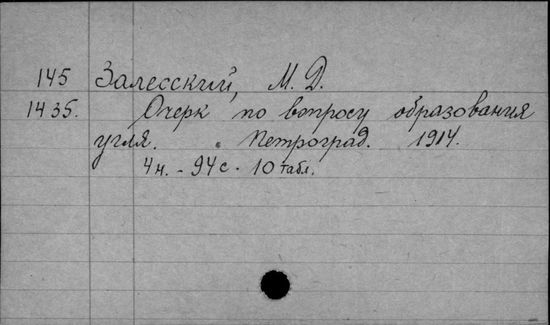 145 Залесский, М. Д.
1435. Очерк по вопросу образования
угля. Петроград. 1914.
4н. - 94с. 10 табл.